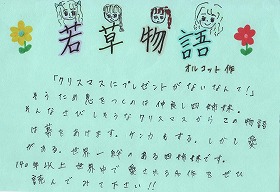 若草物語
オルコット 作
「クリスマスにプレゼントがないなんて！」
そうため息をつくのは仲良し四姉妹。
そんなさびしそうなクリスマスから この物語
は幕をあけます。ケンカもする。しかし愛
がある。世界一絆のある四姉妹です。
140年以上 世界中で 愛されてる作をぜひ
読んでみて下さい!!